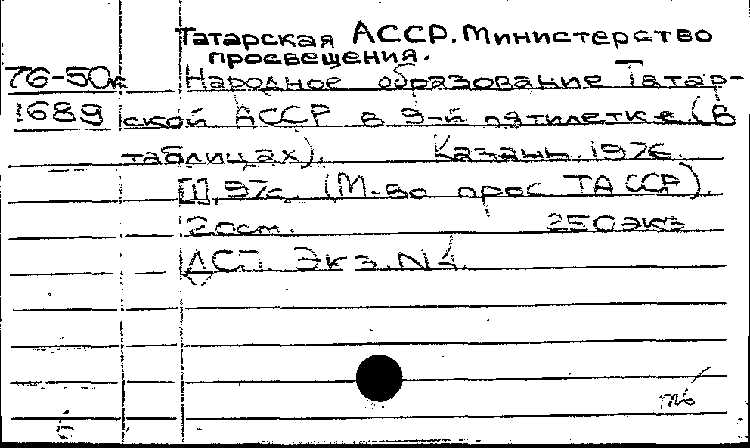 Татарская АССР. Министерство
просвещения.
76-50к Народное образование Татар-
1689 ской АССР в 9-й пятилетке (В
таблицах). Казань. 1976.
[1], 97с. (М-во прос ТАССР).
20см. 250экз
ДСП. Экз. N4.